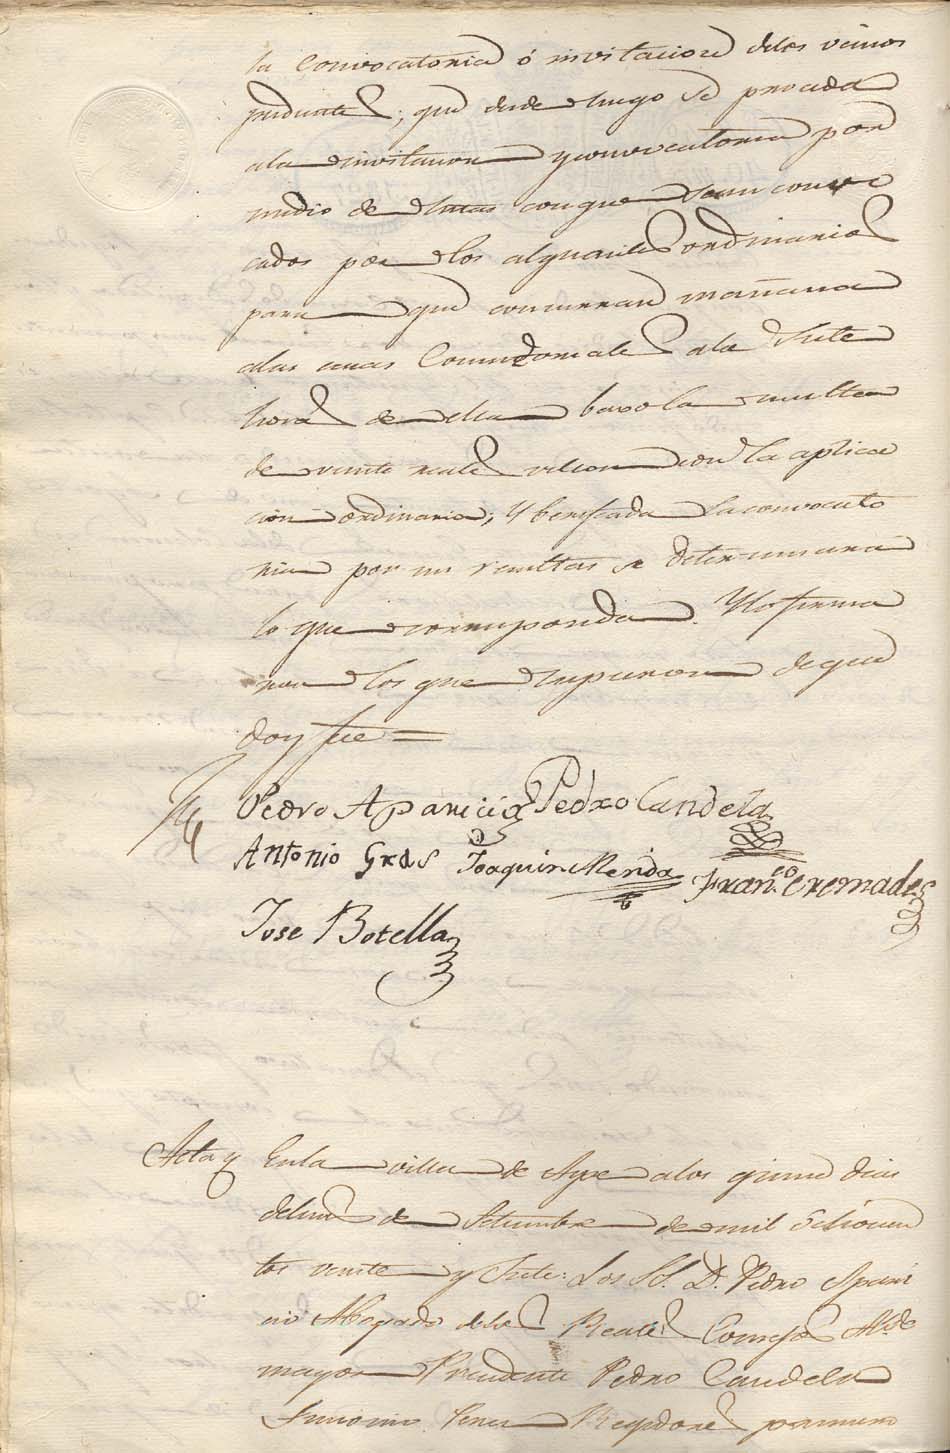 la Convocatoria ó invitacion delos vecinos
prudentes, que desde luego se proceda
ala invitacion y convocatoria por
medio de listas con que sean convo
cados por los alguaciles ordinarios
para que concurran mañana
alas casas Consistoriales ala Siete
horas de ella baxo la multa
de veinte reales vellon con la aplica
cion ordinaria; Y berificada la convocato
ria por sus resultas se determinara
lo que corresponda. Y lo firma
ron los que supieron de que
doy fee =
Pedro Aparicio Pedro Candela
Antonio Grds Joaquin Merida Fran.co Cremades
Jose Botella
Acta y Enla villa de Aspe alos quince dias
delmes de Setiembre de mil ochocien
tos veinte y Siete: Los SS. D. Pedro Apari
cio Abogado delos Reales Consejos Alcde
mayor Presidente Pedro Candela
Antonio Regidores primero